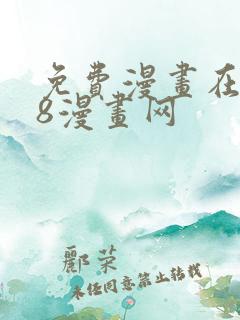 免費漫畫在
8漫畫网
酈荣
未经同意禁止转载